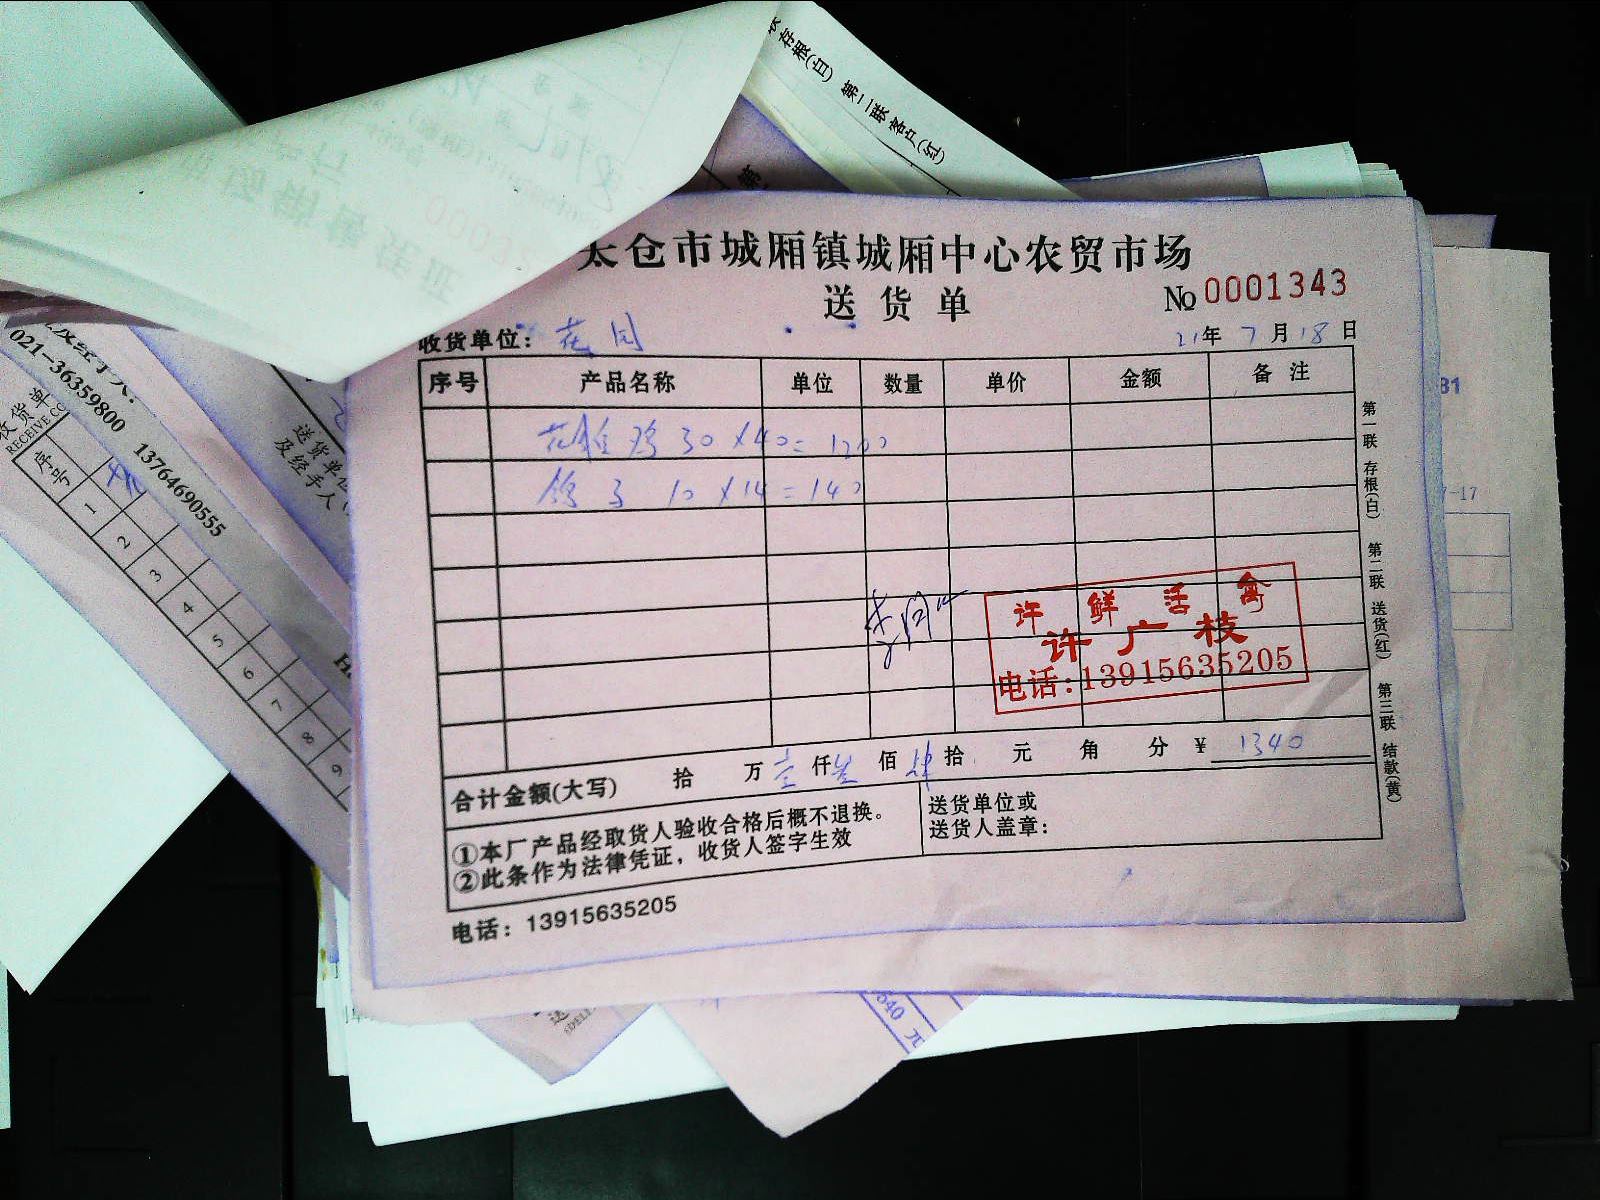 存根(白) 第二联客户(红)
太仓市城厢镇城厢中心农贸市场
送货单
№ 0001343
收货单位: 花园
21年 7月 18日
序号 产品名称 单位 数量 单价 金额 备注
花雏鸡 30×40=1200
鸽子 10×14=140
许鲜活禽
许广枝
电话:13915635205
合计金额(大写) 拾 万 壹仟叁佰肆拾 元 角 分 ¥ 1340
①本厂产品经取货人验收合格后概不退换。
②此条作为法律凭证，收货人签字生效
送货单位或
送货人盖章:
电话: 13915635205
第一联 存根(白) 第二联 送货(红) 第三联 结款(黄)
021-36359800 13764690555
收货单
RECEIVE CO
序号
1
2
3
4
5
6
7
8
9
送货单位
及经手人
7-17
540 元